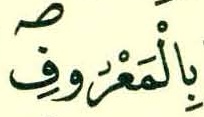 بِالْمَعْرُوفِ ۖ